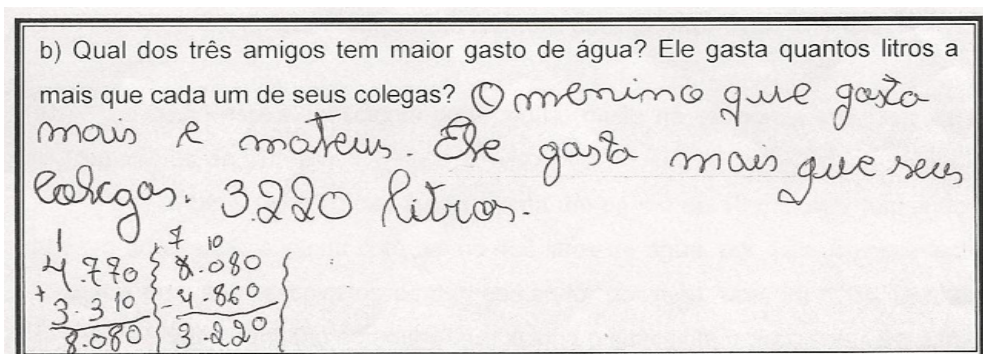 b) Qual dos três amigos tem maior gasto de água? Ele gasta quantos litros a
mais que cada um de seus colegas? O menino que gasta
mais e mateus. Ele gasta mais que seus
colegas. 3.220 litros.
1 7 10
4.770 8.080
+ 3.310 - 4.860
8.080 3.220